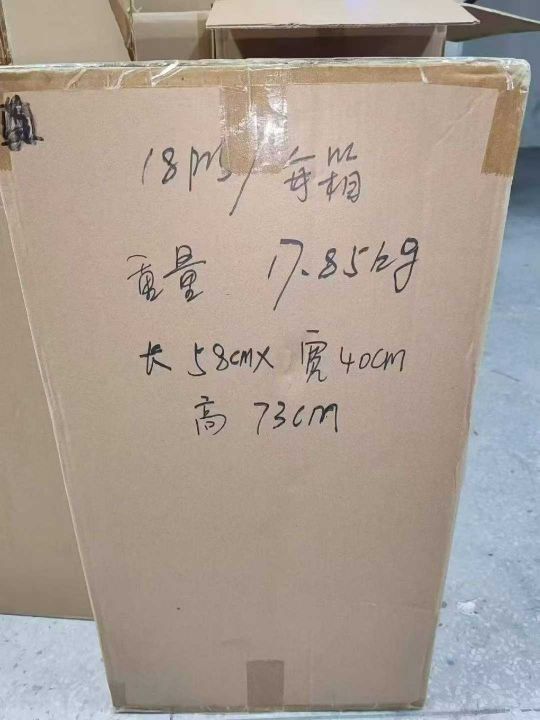 18pcs/每箱
重量 17.85kg
长58cmX 宽40cm
高 73cm